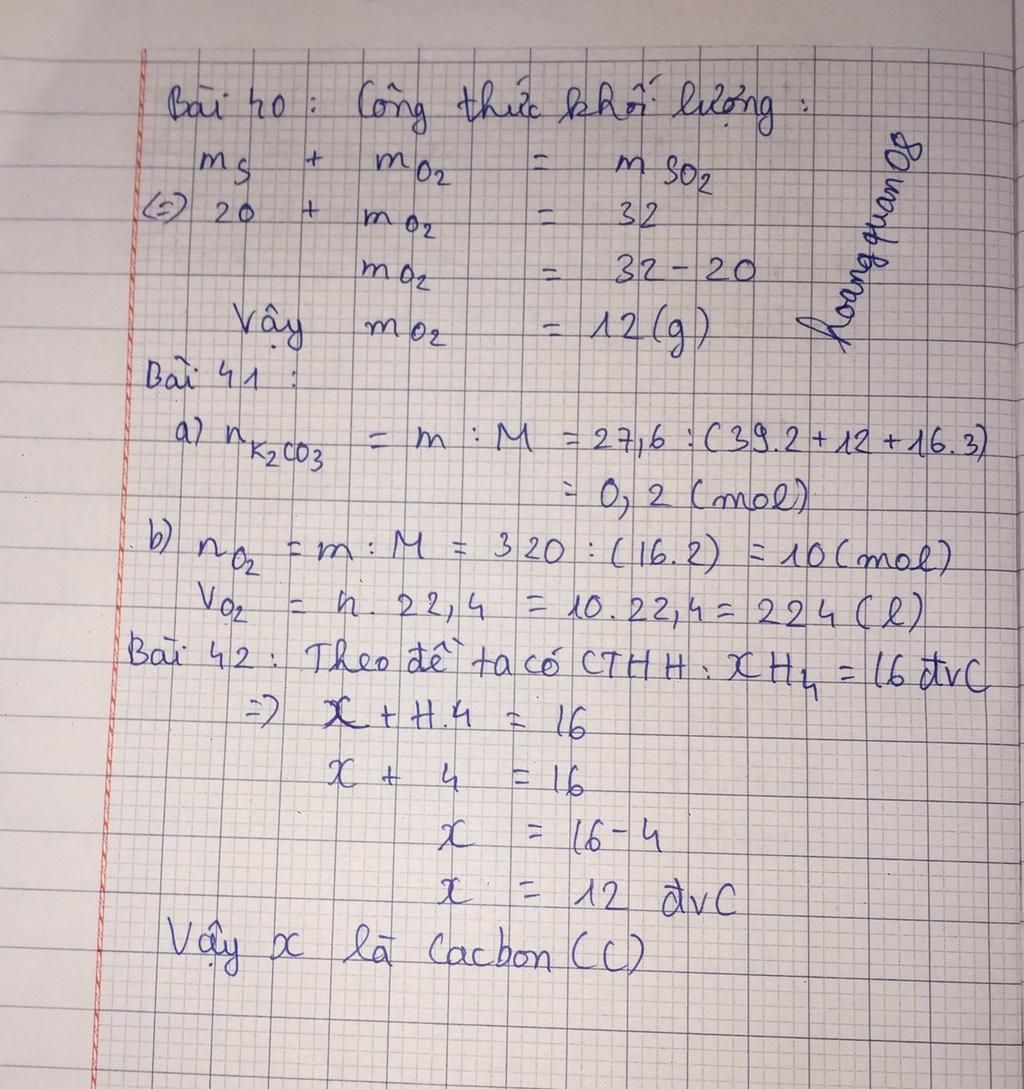 Bài 40 : Công thức khối lượng :
mS + mO2 = mSO2
(=) 20 + mO2 = 32
mO2 = 32 - 20
Vậy mO2 = 12 (g)
hoangquan08
Bài 41 :
a) nK2CO3 = m : M = 27,6 : (39.2 + 12 + 16.3)
= 0,2 (mol)
b) nO2 = m : M = 320 : (16.2) = 10 (mol)
VO2 = n. 22,4 = 10.22,4 = 224 (l)
Bài 42 : Theo đề ta có CTHH : XH4 = 16 đvC
=) X + H.4 = 16
X + 4 = 16
X = 16 - 4
X = 12 đvC
Vậy X là Cacbon (C)